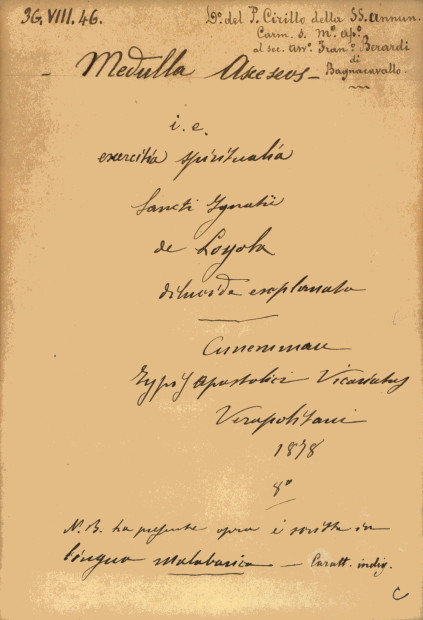 36.VIII.46.
Do. del P. Cirillo della SS. Annun.
Carm. s. Mo. Apo.
al sec. avvo. Frano. Berardi
di
Bagnacavallo.
Medulla Asceseos
i. e.
exercitia spiritualia
Sancti Ignatii
de Loyola
dilucide explanata
Cunemmau
Typis Apostolici Vicariatus
Verapolitani
1878
8o
N. B. La presente opera è scritta in
lingua malabarica — Caratt. indig.
C